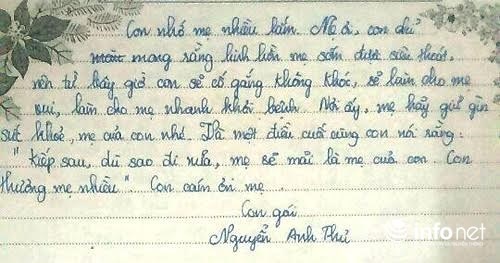 Con nhớ mẹ nhiều lắm. Mẹ ơi, con chỉ
mong rằng linh hồn mẹ sớm được siêu thoát,
nên từ bây giờ con sẽ cố gắng không khóc, sẽ làm cho mẹ
vui, làm cho mẹ nhanh khỏi bệnh. Nơi ấy, mẹ hãy giữ gìn
sức khoẻ, mẹ của con nhé. Và một điều cuối cùng con nói rằng:
"Kiếp sau, dù sao đi nữa, mẹ sẽ mãi là mẹ của con. Con
thương mẹ nhiều". Con cảm ơn mẹ.
Con gái
Nguyễn Anh Thư
infonet